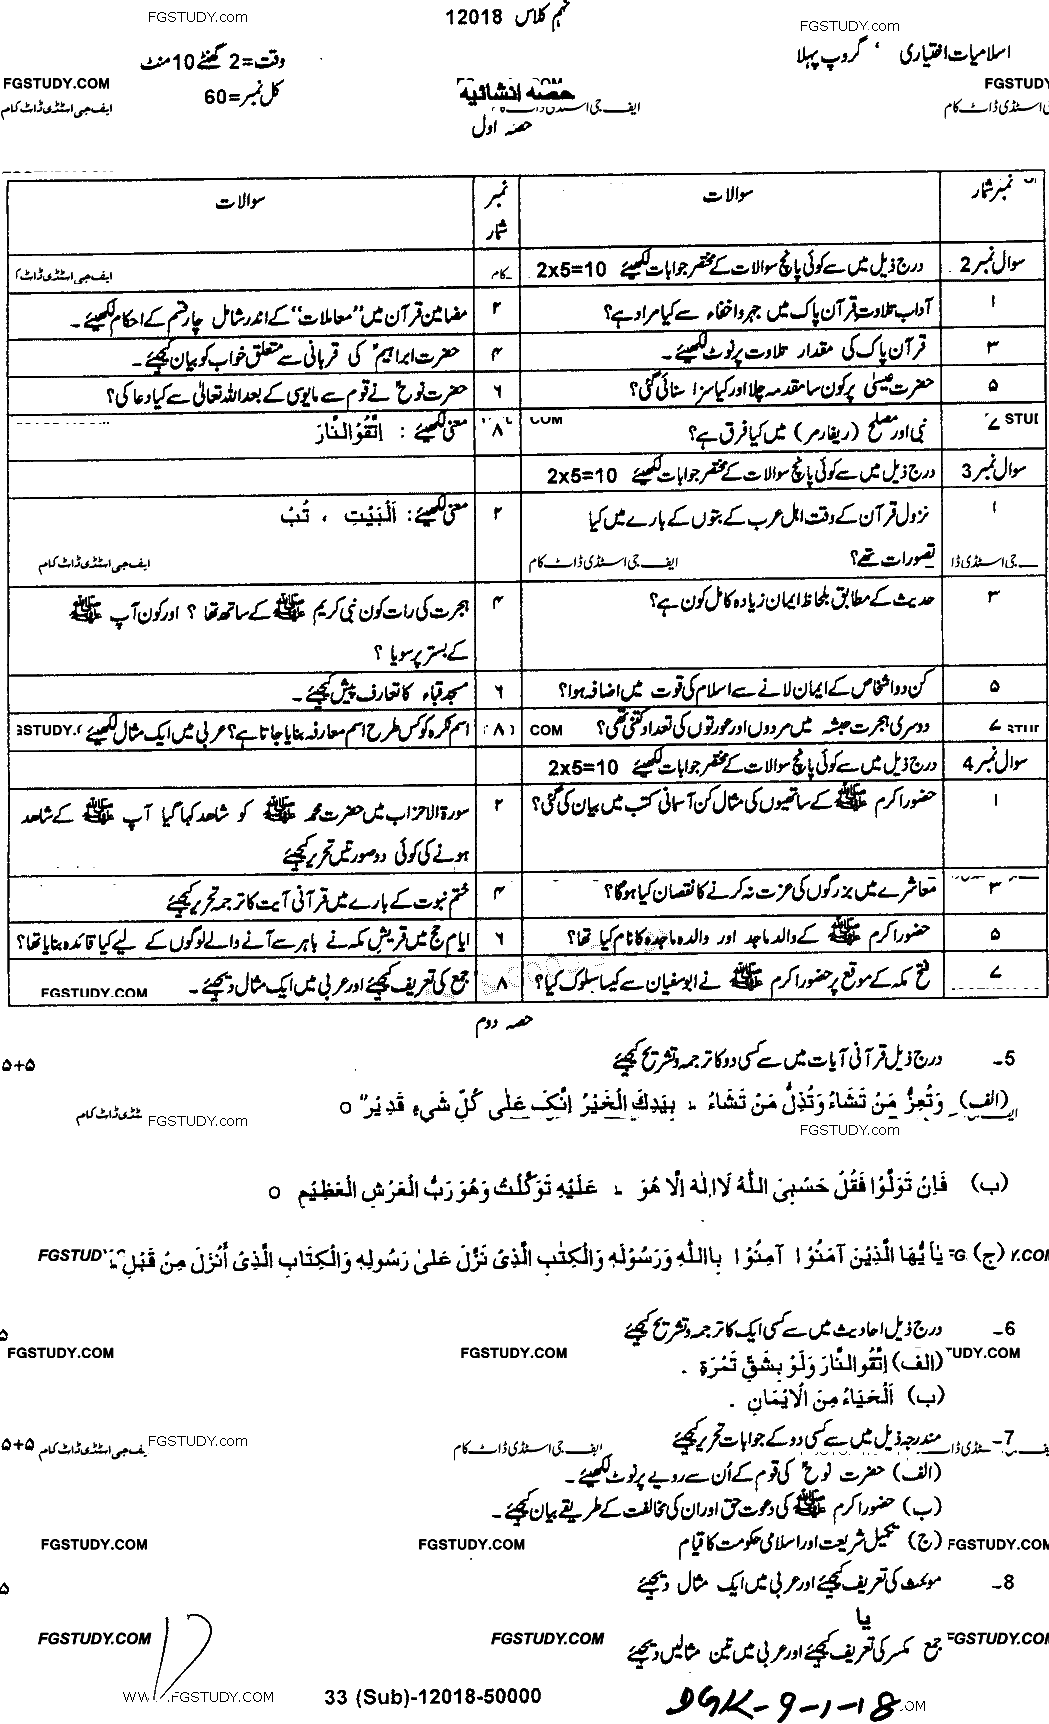 FGSTUDY.COM
نہم کلاس 12018
FGSTUDY.COM
اسلامیات اختیاری ، گروپ پہلا
وقت=2 گھنٹے 10 منٹ
FGSTUDY.COM
حصہ انشائیہ
کل نمبر=60
FGSTUDY
جی اسٹڈی ڈاٹ کام
ایف جی اسٹڈی ڈاٹ کام
ایف جی اسٹڈی ڈاٹ کام
حصہ اول
نمبر شمار سوالات نمبر شمار سوالات
سوال نمبر 2 درج ذیل میں سے کوئی پانچ سوالات کے مختصر جوابات لکھیئے 2x5=10
ایف جی اسٹڈی ڈاٹ کام
۱ آداب تلاوت قرآن پاک میں جہر و اخفاء سے کیا مراد ہے؟ ۲ مضامین قرآن میں "معاملات" کے اندر شامل چار قسم کے احکام لکھیئے۔
۳ قرآن پاک کی مقدار تلاوت پر نوٹ لکھیئے۔ ۴ حضرت ابراہیمؑ کی قربانی سے متعلق خواب کو بیان کیجیئے۔
۵ حضرت عیسیٰؑ پر کون سا مقدمہ چلا اور کیا سزا سنائی گئی؟ ۶ حضرت نوحؑ نے قوم سے مایوسی کے بعد اللہ تعالیٰ سے کیا دعا کی؟
۷ نبی اور مصلح (ریفارمر) میں کیا فرق ہے؟ ۸ معنی لکھیئے: اِتَّقُوا النَّارَ
سوال نمبر 3 درج ذیل میں سے کوئی پانچ سوالات کے مختصر جوابات لکھیئے 2x5=10
۱ نزول قرآن کے وقت اہل عرب کے بتوں کے بارے میں کیا ۲ معنی لکھیئے: اَلْبَیْتِ ، تُبْ
تصورات تھے؟ ایف جی اسٹڈی ڈاٹ کام ایف جی اسٹڈی ڈاٹ کام
۳ حدیث کے مطابق بلحاظ ایمان زیادہ کامل کون ہے؟ ۴ ہجرت کی رات کون نبی کریم ﷺ کے ساتھ تھا ؟ اور کون آپ ﷺ
کے بستر پر سویا ؟
۵ کن دو اشخاص کے ایمان لانے سے اسلام کی قوت میں اضافہ ہوا؟ ۶ مسجد قباء کا تعارف پیش کیجیئے۔
۷ دوسری ہجرت حبشہ میں مردوں اور عورتوں کی تعداد کتنی تھی؟ ۸ اسم نکرہ کو کس طرح اسم معارفہ بنایا جاتا ہے؟ عربی میں ایک مثال لکھیئے
سوال نمبر 4 درج ذیل میں سے کوئی پانچ سوالات کے مختصر جوابات لکھیئے 2x5=10
۱ حضور اکرم ﷺ کے ساتھیوں کی مثال کن آسمانی کتب میں بیان کی گئی؟ ۲ سورۃ الاحزاب میں حضرت محمد ﷺ کو شاھد کہا گیا آپ ﷺ کے شاھد
ہونے کی کوئی دو صورتیں تحریر کیجیئے
۳ معاشرے میں بزرگوں کی عزت نہ کرنے کا نقصان کیا ہوگا؟ ۴ ختم نبوت کے بارے میں قرآنی آیت کا ترجمہ تحریر کیجیئے
۵ حضور اکرم ﷺ کے والد ماجد اور والدہ ماجدہ کا نام کیا تھا؟ ۶ ایام حج میں قریش مکہ نے باہر سے آنے والے لوگوں کے لیے کیا قائدہ بنایا تھا؟
۷ فتح مکہ کے موقع پر حضور اکرم ﷺ نے ابو سفیان سے کیسا سلوک کیا؟ ۸ جمع کی تعریف کیجیئے اور عربی میں ایک مثال دیجیئے۔
FGSTUDY.COM
حصہ دوم
5۔ درج ذیل قرآنی آیات میں سے کسی دو کا ترجمہ و تشریح کیجیئے ۵+۵
(الف)۔ وَتُعِزُّ مَنْ تَشَاءُ وَتُذِلُّ مَنْ تَشَاءُ ۔ بِیَدِكَ الْخَیْرُ اِنَّكَ عَلٰی كُلِّ شَیْءٍ قَدِیْرٌ o
FGSTUDY.COM
FGSTUDY.COM
(ب) فَاِنْ تَوَلَّوْا فَقُلْ حَسْبِیَ اللّٰهُ لَا اِلٰهَ اِلَّا هُوَ ۔ عَلَیْهِ تَوَكَّلْتُ وَهُوَ رَبُّ الْعَرْشِ الْعَظِیْمِ o
(ج) یٰاَ یُّهَا الَّذِیْنَ آمَنُوْا آمِنُوْا بِاللّٰهِ وَرَسُوْلِهٖ وَالْكِتٰبِ الَّذِیْ نَزَّلَ عَلٰی رَسُوْلِهٖ وَالْكِتَابِ الَّذِیْ اُنْزَلَ مِنْ قَبْلُ ؕ
6۔ درج ذیل احادیث میں سے کسی ایک کا ترجمہ و تشریح کیجیئے ۵
FGSTUDY.COM FGSTUDY.COM TUDY.COM
(الف) اِتَّقُوا النَّارَ وَلَوْ بِشَقِّ تَمْرَةٍ ۔
(ب) اَلْحَیَاءُ مِنَ الْاِیْمَانِ ۔
7۔ مندرجہ ذیل میں سے کسی دو کے جوابات تحریر کیجیئے ۵+۵
FGSTUDY.COM
ایف جی اسٹڈی ڈاٹ کام
(الف) حضرت نوحؑ کی قوم کے اُن سے رویے پر نوٹ لکھیئے۔
(ب) حضور اکرم ﷺ کی دعوت حق اور ان کی مخالفت کے طریقے بیان کیجیئے۔
(ج) تکمیل شریعت اور اسلامی حکومت کا قیام
FGSTUDY.COM FGSTUDY.COM FGSTUDY.COM
8۔ مونث کی تعریف کیجیئے اور عربی میں ایک مثال دیجیئے ۵
یا
جمع مکسر کی تعریف کیجیئے اور عربی میں تین مثالیں دیجیئے
FGSTUDY.COM FGSTUDY.COM FGSTUDY.COM
WWW.FGSTUDY.COM
33 (Sub)-12018-50000
DGK-9-1-18